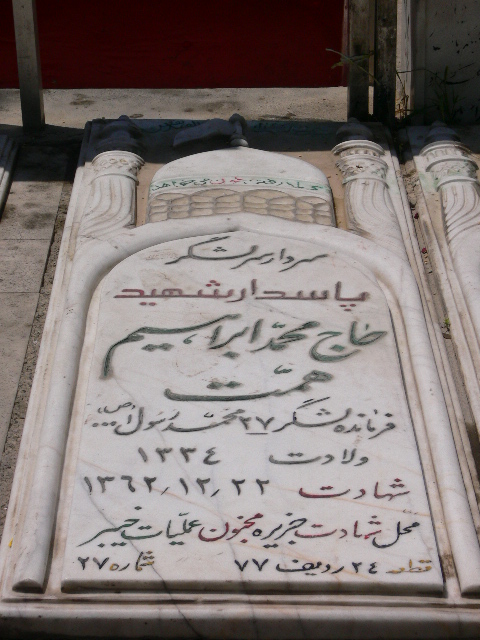 سردار سرلشگر
پاسدار شهید
حاج محمّد ابراهیم
همّت
فرمانده لشگر ۲۷ محمّد رسول الله (ص)
ولادت ۱۳۳۴
شهادت ۱۳۶۲/۱۲/۲۲
محل شهادت جزیره مجنون عملیات خیبر
قطعه ۲۴ ردیف ۷۷ شماره ۲۷